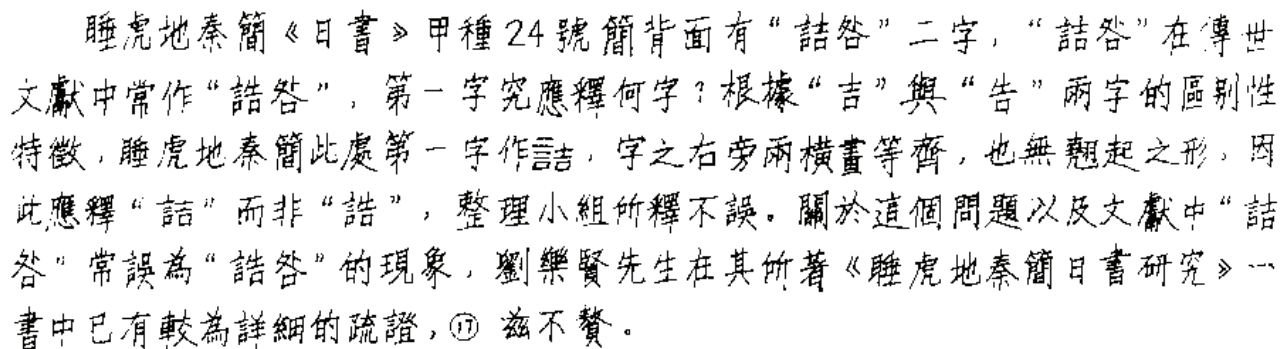 睡虎地秦簡《日書》甲種24號簡背面有“詰咎”二字，“詰咎”在傳世
文獻中常作“誥咎”，第一字究應釋何字？根據“吉”與“告”兩字的區別性
特徵，睡虎地秦簡此處第一字作詰，字之右旁兩橫畫等齊，也無翹起之形，因
此應釋“詰”而非“誥”，整理小組所釋不誤。關於這個問題以及文獻中“詰
咎”常誤為“誥咎”的現象，劉樂賢先生在其所著《睡虎地秦簡日書研究》一
書中已有較為詳細的疏證，⑰ 茲不贅。